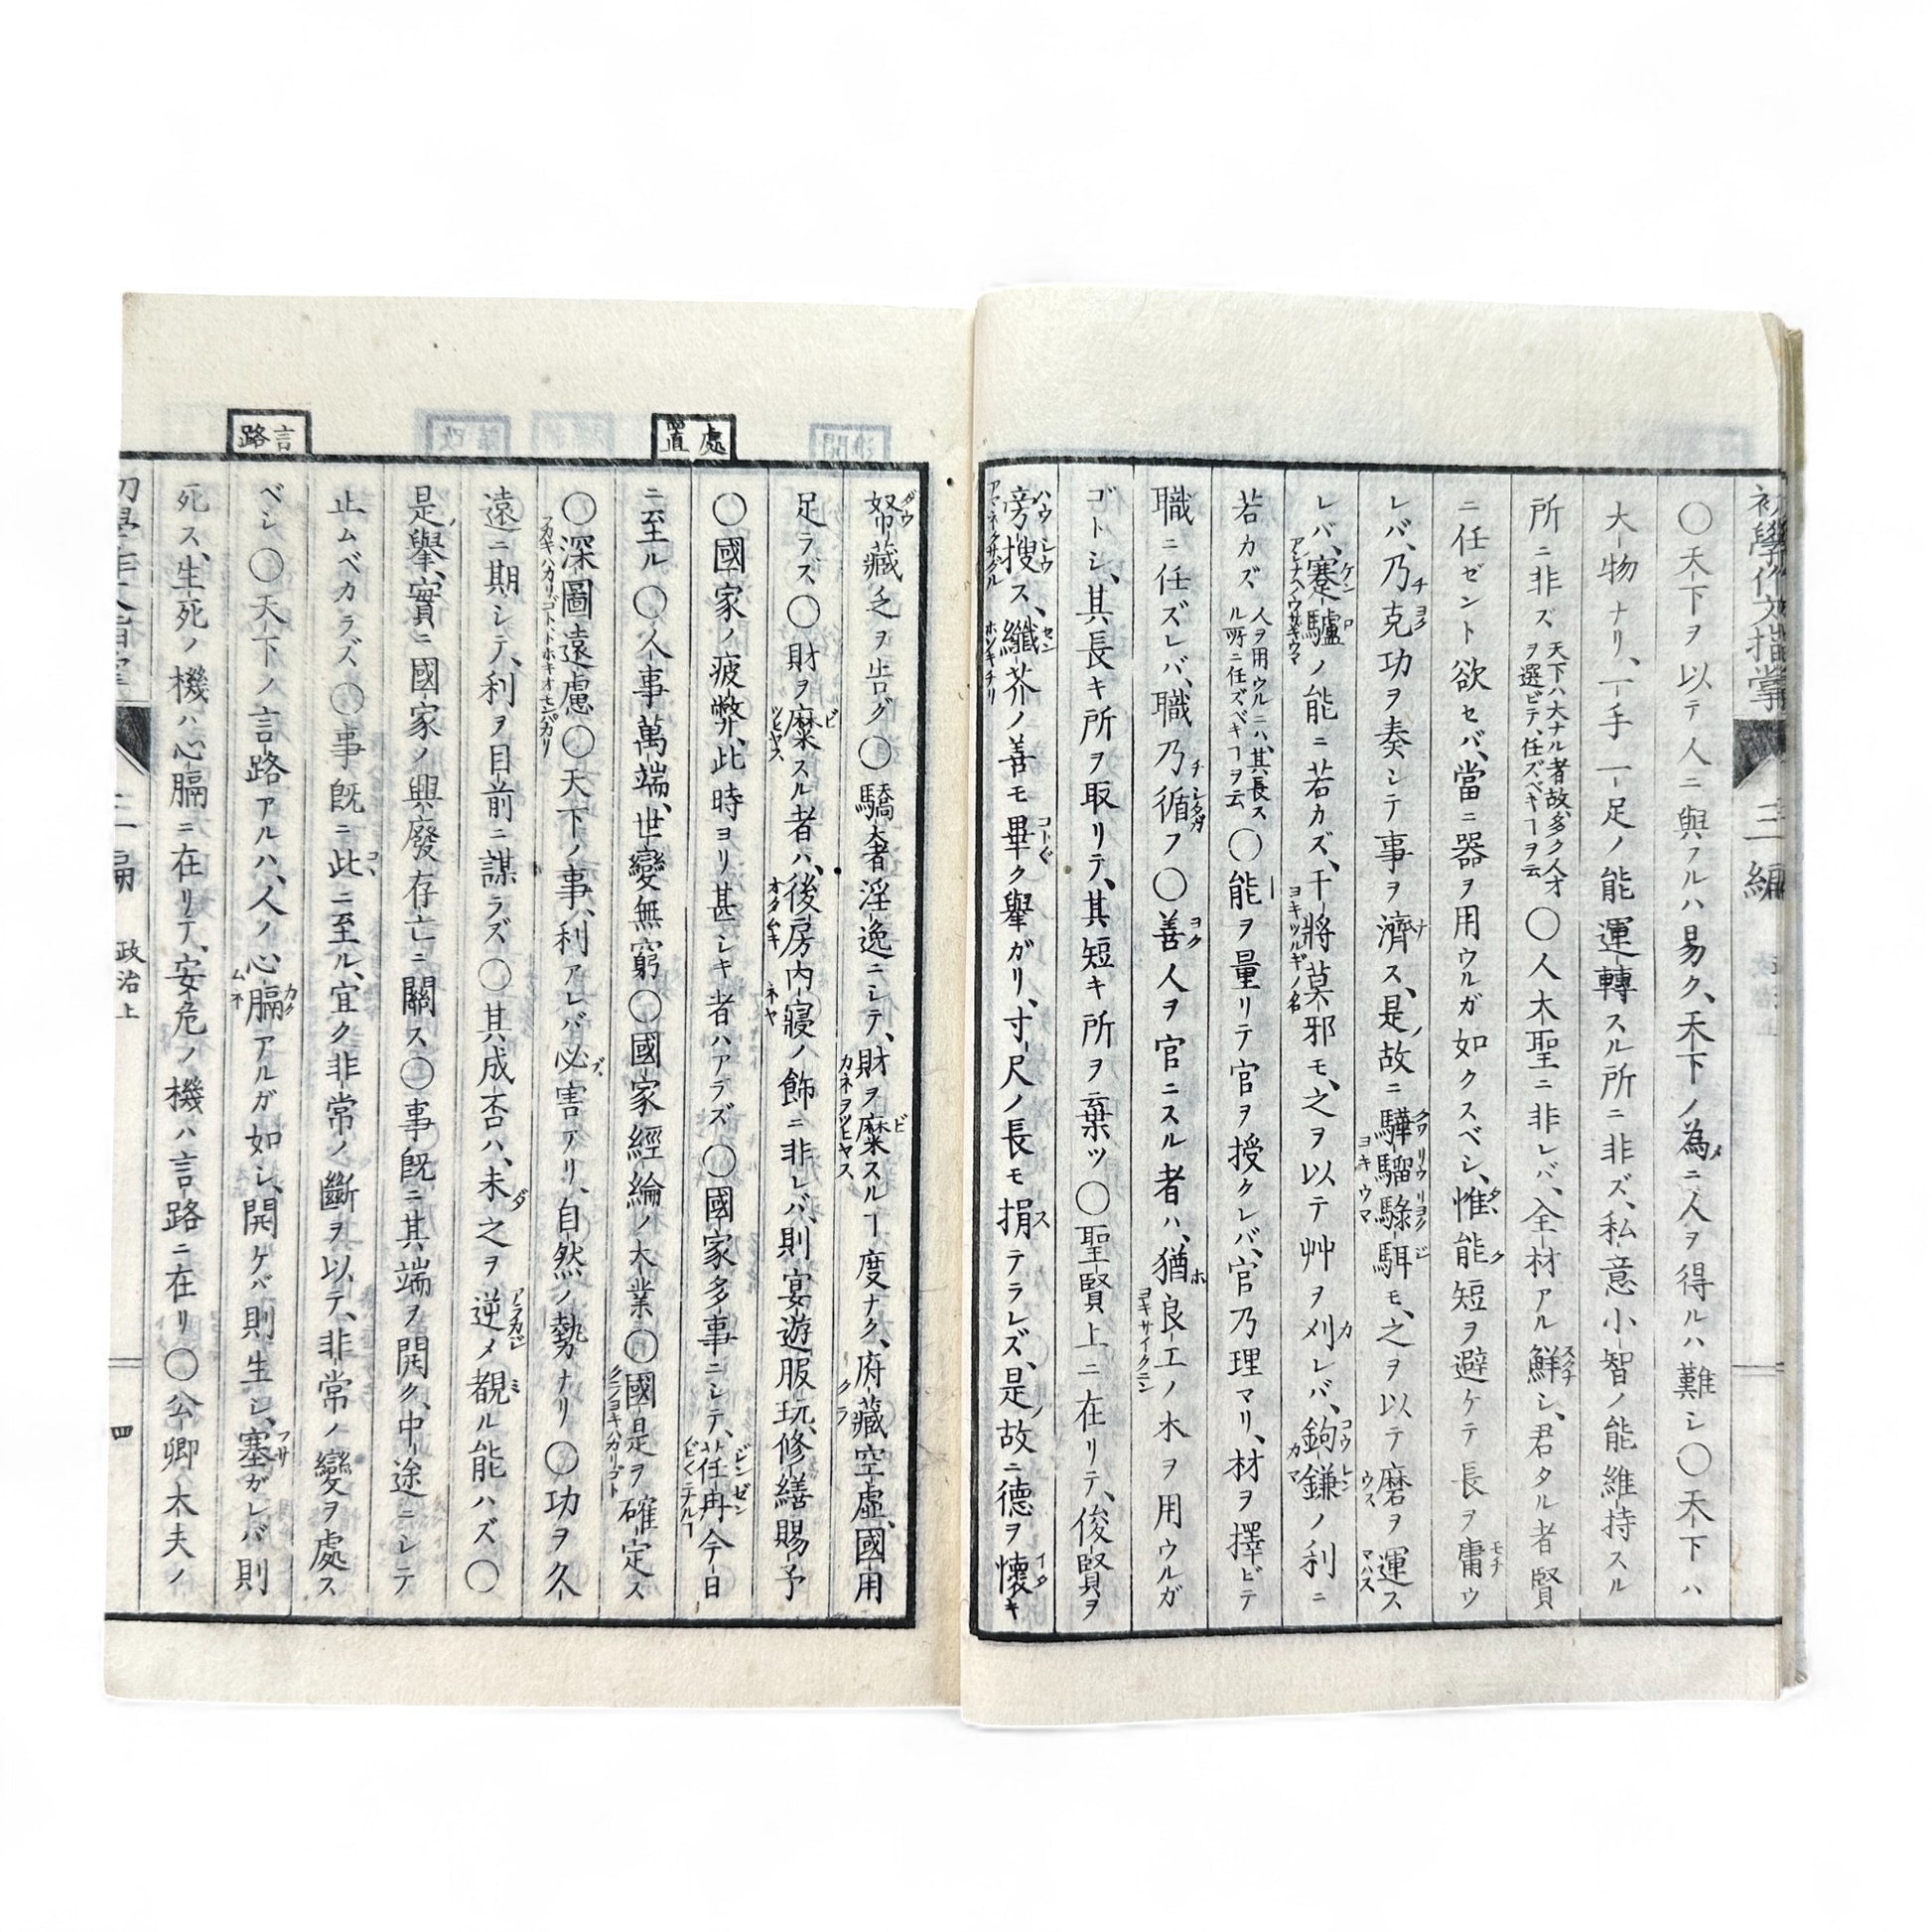 初學作文指掌
三編
〇天下ヲ以テ人ニ與フルハ易ク、天下ノ為メニ人ヲ得ルハ難シ〇天下ハ
大物ナリ、一手一足ノ能運轉スル所ニ非ズ、私意小智ノ能維持スル
所ニ非ズ天下ハ大ナル者故、多ク人才ヲ選ビテ、任ズベキヿヲ云〇人木聖ニ非レバ、全材アル鮮シ、君タル者賢
ニ任ゼント欲セバ、當ニ器ヲ用ウルガ如クスベシ、惟能ク短ヲ避ケテ長ヲ庸ウ
レバ、乃チ克功ヲ奏シテ事ヲ濟ス、是ノ故ニ驊騮騄駬モ、之ヲ以テ磨ヲ運ス
レバ、蹇驢ノ能ニ若カズ、干將莫邪モ、之ヲ以テ艸ヲ刈レバ、鉤鎌ノ利ニ
若カズ人ヲ用ウルニハ、其長スル所ニ任ズベキヿヲ云〇能ヲ量リテ官ヲ授クレバ、官乃理マリ、材ヲ擇ビテ
職ニ任ズレバ、職乃チ循フ〇善ク人ヲ官ニスル者ハ、猶ホ良工ノ木ヲ用ウルガ
ゴトシ、其長キ所ヲ取リテ、其短キ所ヲ棄ツ〇聖賢上ニ在リテ、俊賢ヲ
旁搜ス、纖芥ノ善モ畢ク舉ガリ、寸尺ノ長モ捐テラレズ、是ノ故ニ德ヲ懷キ
處置
言路
帑藏乏ヲ告グ〇驕奢淫逸ニシテ、財ヲ糜スルヿ度ナク、府藏空虛、國用
足ラズ〇財ヲ糜スル者ハ、後房内寢ノ飾ニ非レバ、則宴遊服玩、修繕賜予
〇國家ノ疲弊、此時ヨリ甚シキ者ハアラズ〇國家多事ニシテ、荏冉今日
ニ至ル〇人事萬端、世變無窮〇國家經綸ノ大業〇國是ヲ確定ス
〇深圖遠慮〇天下ノ事、利アレバ必ズ害アリ、自然ノ勢ナリ〇功ヲ久
遠ニ期シテ、利ヲ目前ニ謀ラズ〇其成否ハ、未ダ之ヲ逆メ覩ル能ハズ〇
是ノ舉、實ニ國家ノ興廢存亡ニ關ス〇事既ニ其端ヲ開ク、中途ニシテ
止ムベカラズ〇事既ニ此ニ至ル、宜ク非常ノ斷ヲ以テ、非常ノ變ヲ處ス
ベシ〇天下ノ言路アルハ、人ノ心膈アルガ如シ、開ケバ則生シ、塞ガレバ則
死ス、生死ノ機ハ心膈ニ在リテ、安危ノ機ハ言路ニ在リ〇公卿大夫ノ
政治上
四